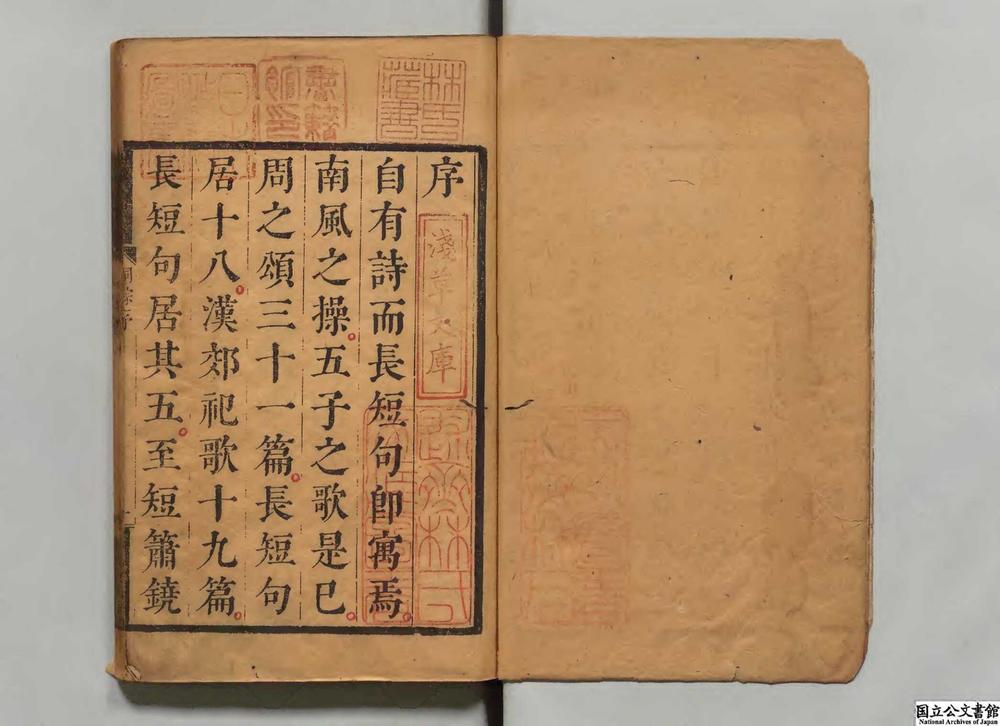 序
自有詩而長短句卽寓焉。
南風之操。五子之歌是已。
周之頌三十一篇。長短句
居十八。漢郊祀歌十九篇。
長短句居其五。至短簫鐃
淺草文庫
林氏藏書
国立公文書館
National Archives of Japan